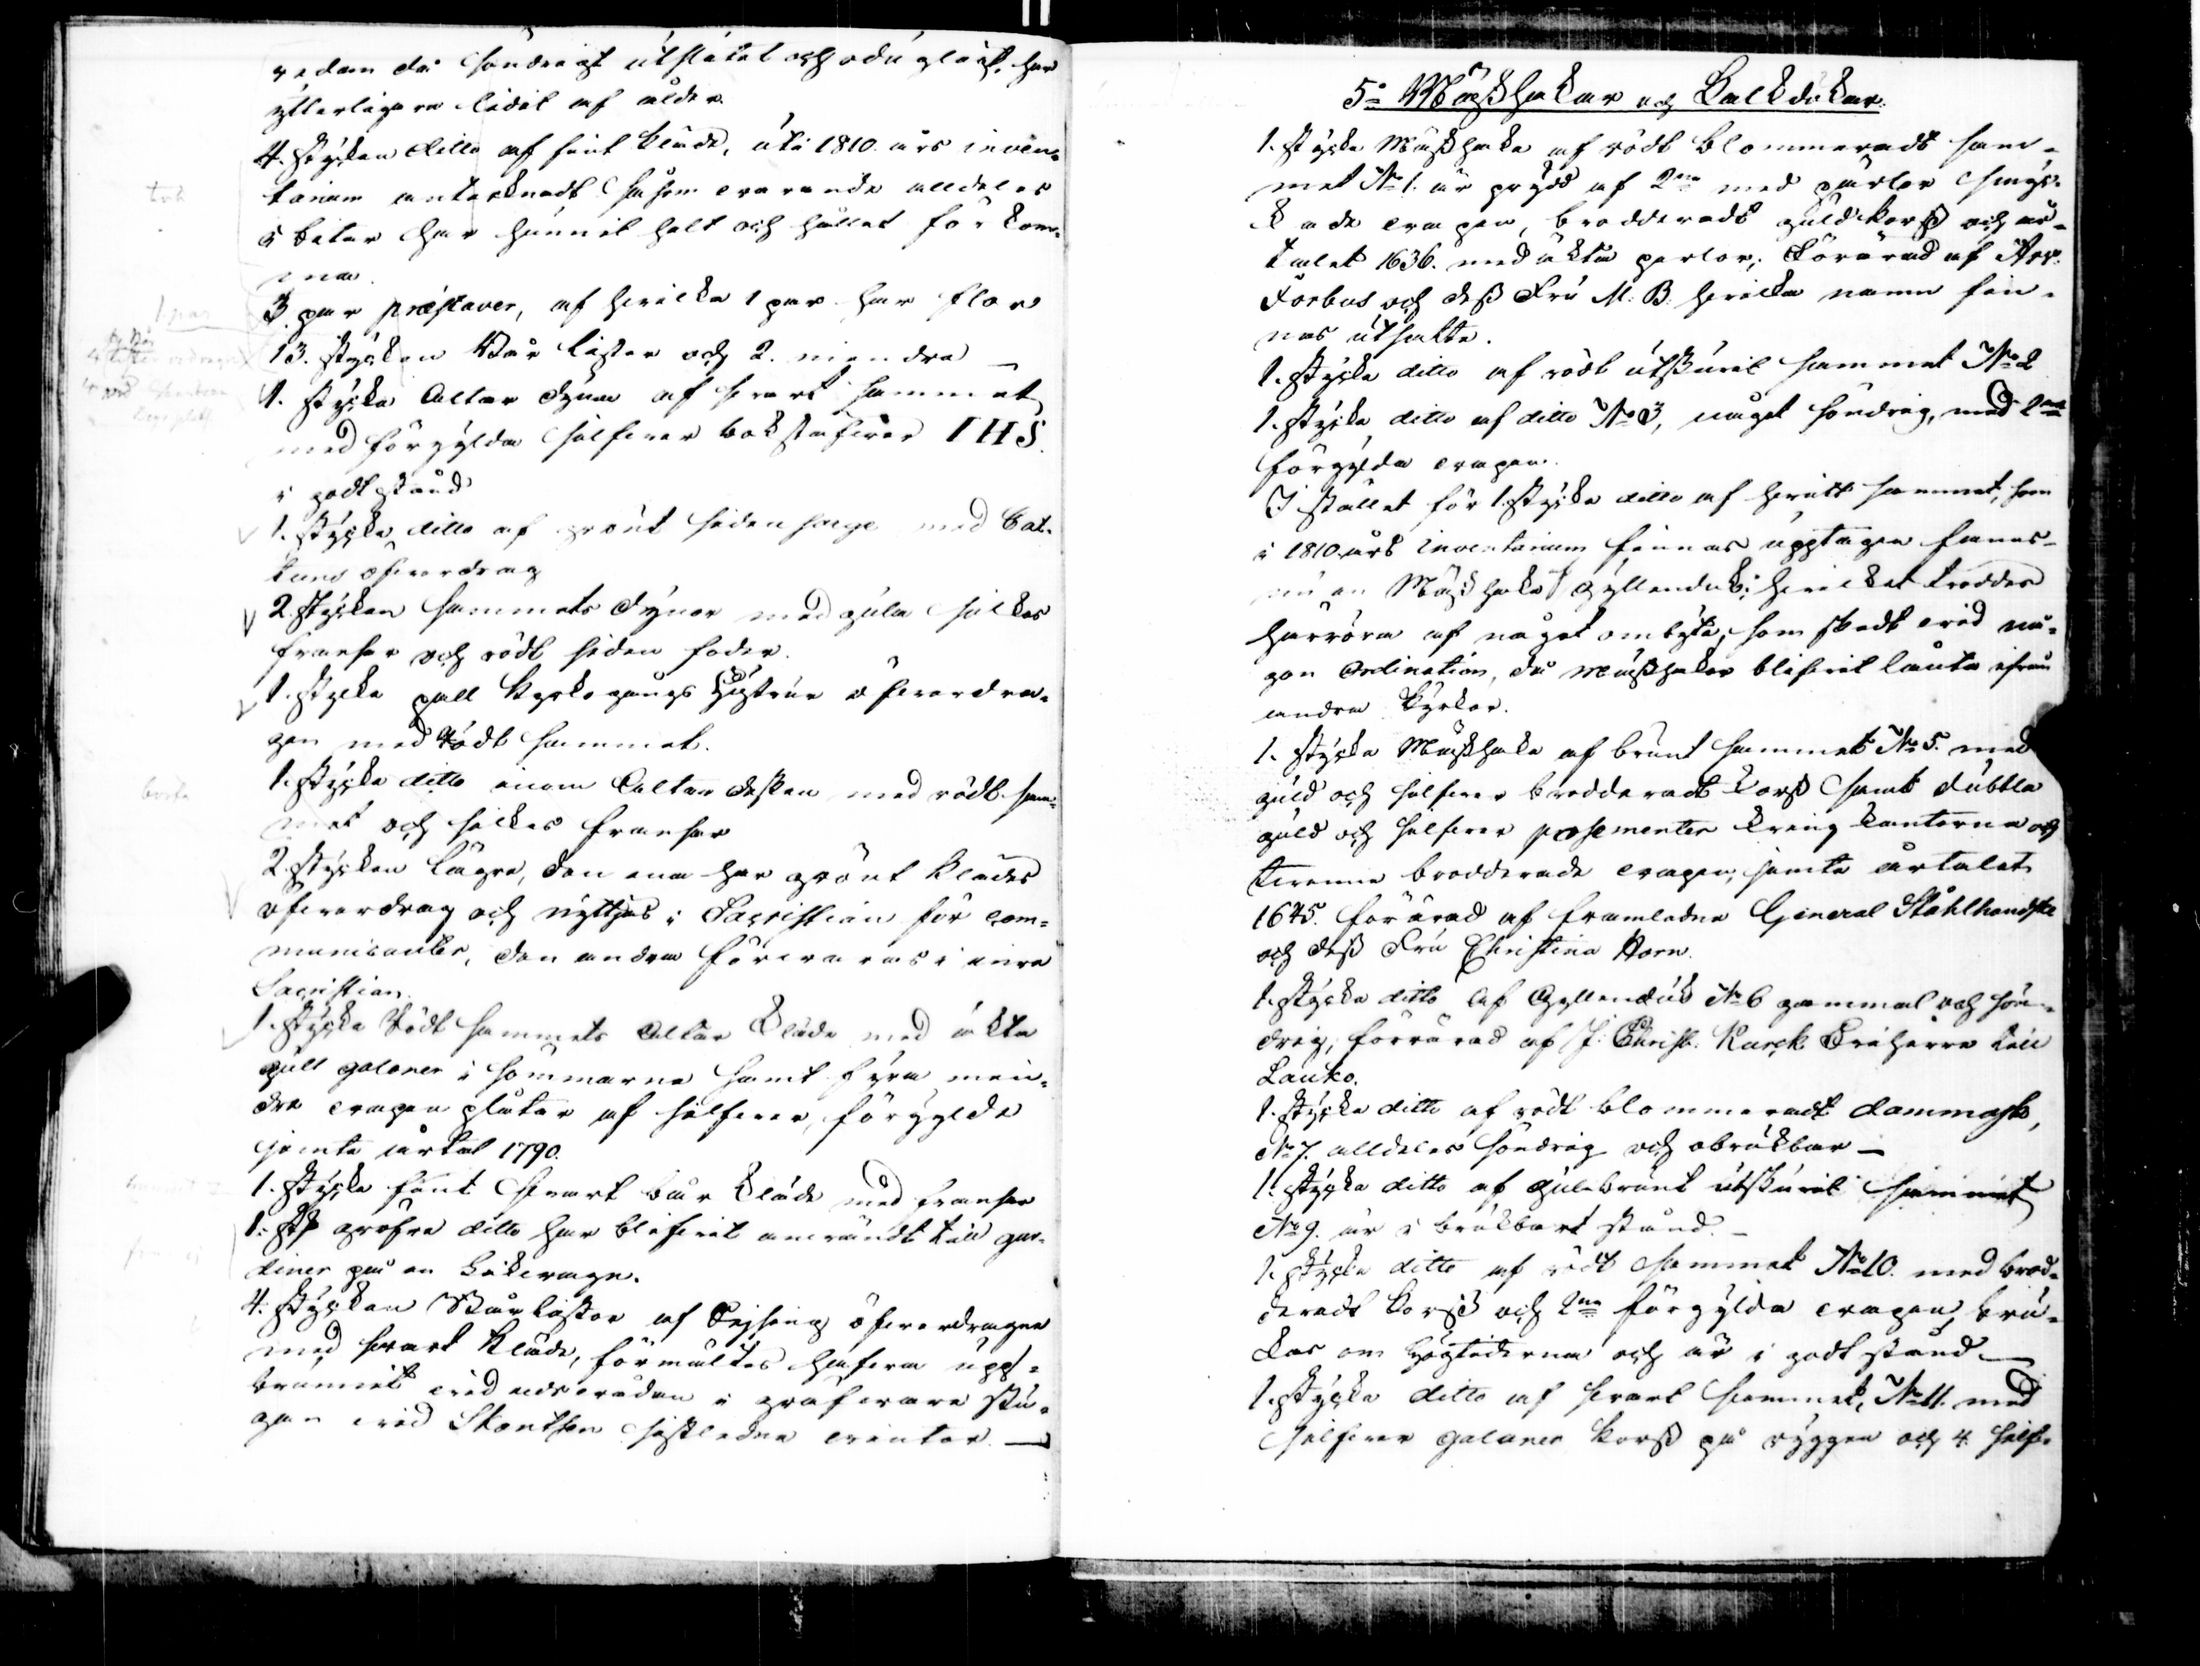 redan då söndrigt utslitet och odugligt, har
ytterligare lidit af ålder.
4. stycken ditto af fint kläde, uti 1810. års inven-
tarium antecknadt såsom varande alldeles
i bitar har hunnit helt och hållet förkom-
ma.
3 par præstaver, af hvilka 1 par har flor
13. stycken Bår lister och 2. mindre
1. stycke Altar dyna af svart sammet
med förgylda silfver bokstäfver IHS.
i godt stånd
1. stycke ditto af grönt siden sarge med Cat-
tuns öfverdrag
2. stycken Sammets dynor med gula silkes
fransar och rödt siden foder.
1. stycke pall Kyrkogångs Hustrur öfverdra-
gen med rödt sammet.
1. stycke ditto inom Altar disken med rödt sam-
met och silkes fransar
2 stycken lägre, den ena har grönt klädes
öfverdrag och nyttjas i Sacristian för com-
municanter, den andra förvaras i inre
Sacristian.
1. stycke rödt sammets Altar kläde med äkta
gull galoner i sömmarne samt fyra min-
dre vapen plåtar af silfver, förgylde
jemte årtal 1790.
1. stycke fint svart bår kläde med fransar
1. st. gröfre ditto har blifvit användt till gar-
diner på en Likvagn.
4. stycken Bår listor af Rejsing öfverdragna
med svart kläde, förmältes hafva upp-
brunnit vid eldsvådan i gräfvare stu-
gan vid Skantsen sistledne vinter. —
5:o Mässhakar och Kalkdukar.
1. stycke Mässhake af rödt blommeradt sam-
met No 1. är prydd af 2ne med pärlor smyc-
kade vapen, brodderadt guldkorss och år-
talet 1636. med äkta perlor, förärad af Arv.
Forbus och dess Fru M. B. hvilka namn fin-
nas utsatte.
1. stycke ditto af rödt utskurit sammet No 2
1. stycke ditto af ditto No 3, något söndrig, med 2ne
förgylda vapen.
I stället för 1. stycke ditto af hvitt sammet, som
i 1810 års inventarium finnas upptagen fanns
nu en Mässhake Gyllenduk; hvilket troddes
härröra af något ombyte, som skedt vid nå-
gon Ordination, då mässhakar blifvit lånta ifrån
andra kyrkor.
1. stycke Mässhake af brunt sammet No 5. med
guld och silfver brodderadt korss samt dubbla
guld och silfver posementer kring kanterna och
tvenne brodderade vapen, jemte årtalet
1645. förärad af framledne General Stålhandske
och dess Fru Christina Horn.
1. stycke ditto af Gyllenduk No 6 gammal och sön-
drig, förärad af J. Christ. Kurck Friherre till
Lauko.
1. stycke ditto af rödt blommeradt dammask,
No 7. alldeles söndrig och obrukbar —
1. stycke ditto af gulbrunt utskurit sammet
No 9. är i brukbart stånd. —
1. stycke ditto af rödt sammet No 10. med brod-
deradt korss och 2ne förgylda vapen, bru-
kas om högtiderna och är i godt stånd —
1. stycke ditto af svart sammet, No 11. med
silfver galoner korss på ryggen och 4. silf-